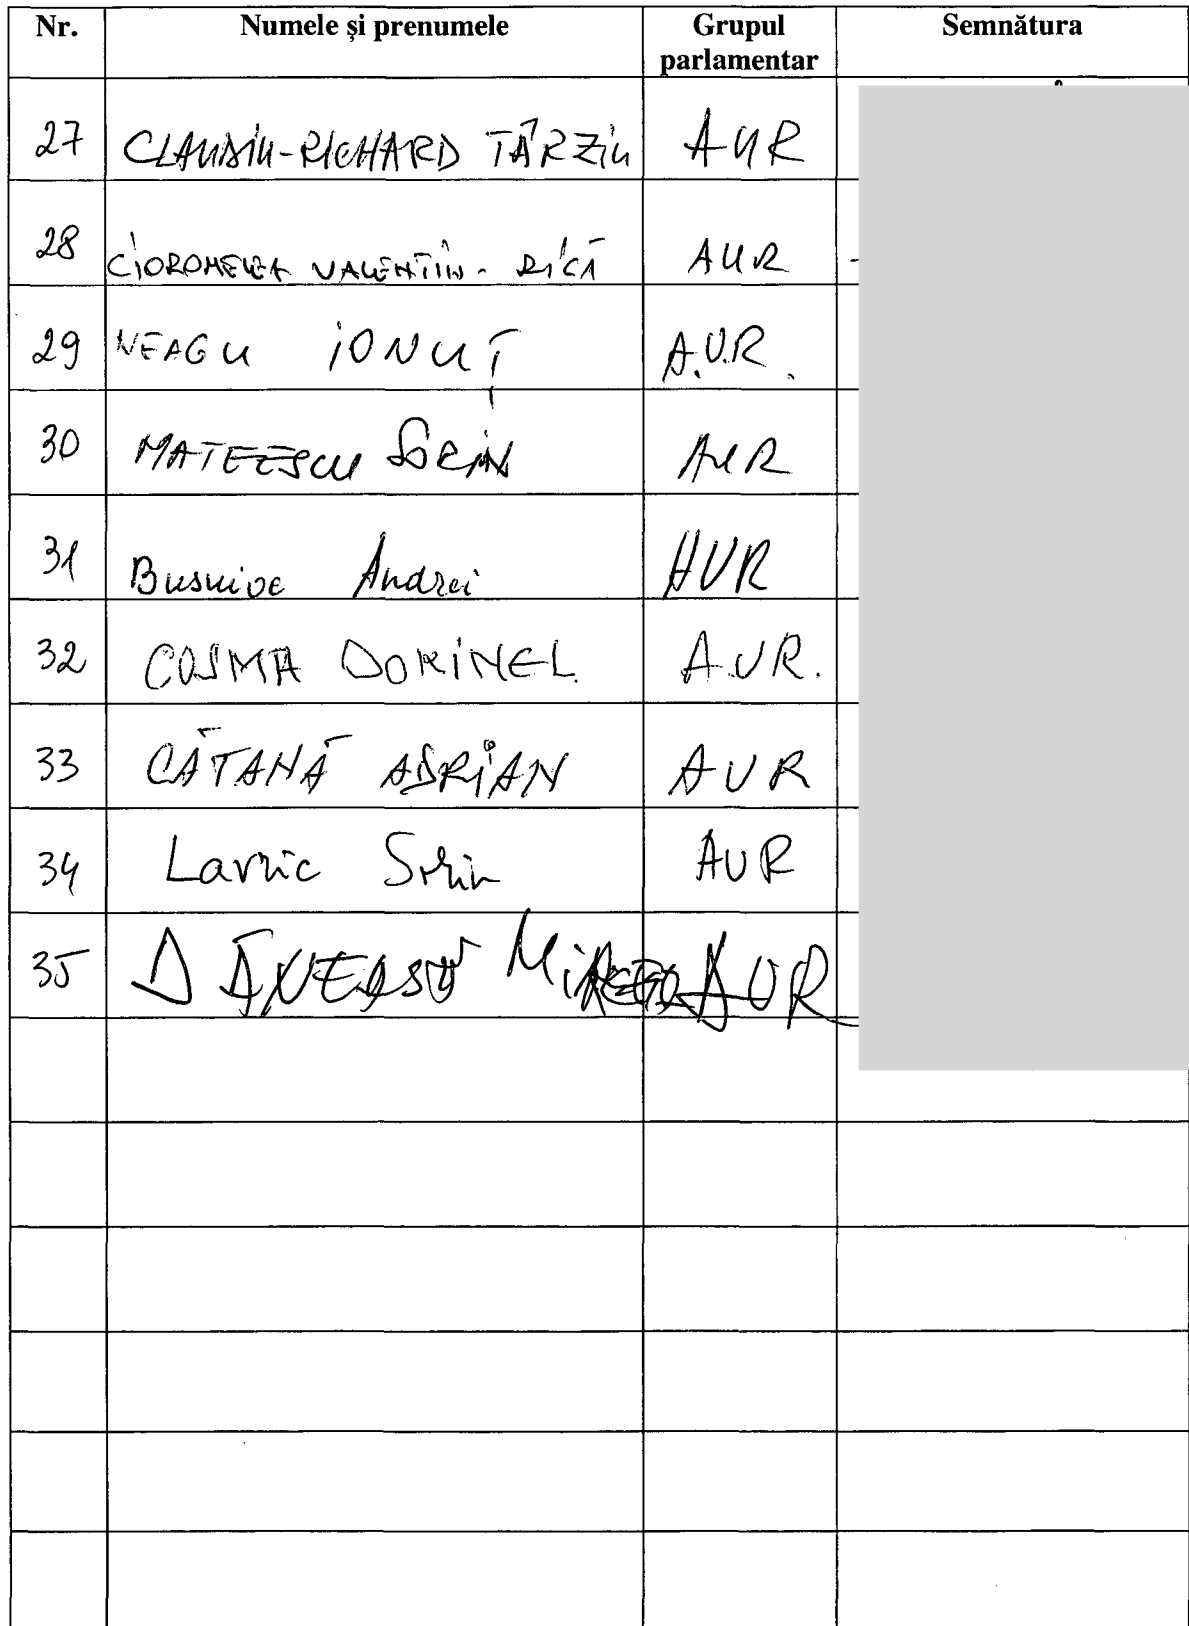 Nr. Numele și prenumele Grupul parlamentar Semnătura
27 CLAUDIU-RICHARD TÂRZIU AUR
28 CIOROMELEA VALENTIN-RICĂ AUR
29 NEAGU IONUȚ A.U.R.
30 MATEESCU SORIN AUR
31 Busuioc Andrei AUR
32 COSMA DORINEL A.U.R.
33 CĂTANĂ ADRIAN AUR
34 Lavric Sorin AUR
35 AUR